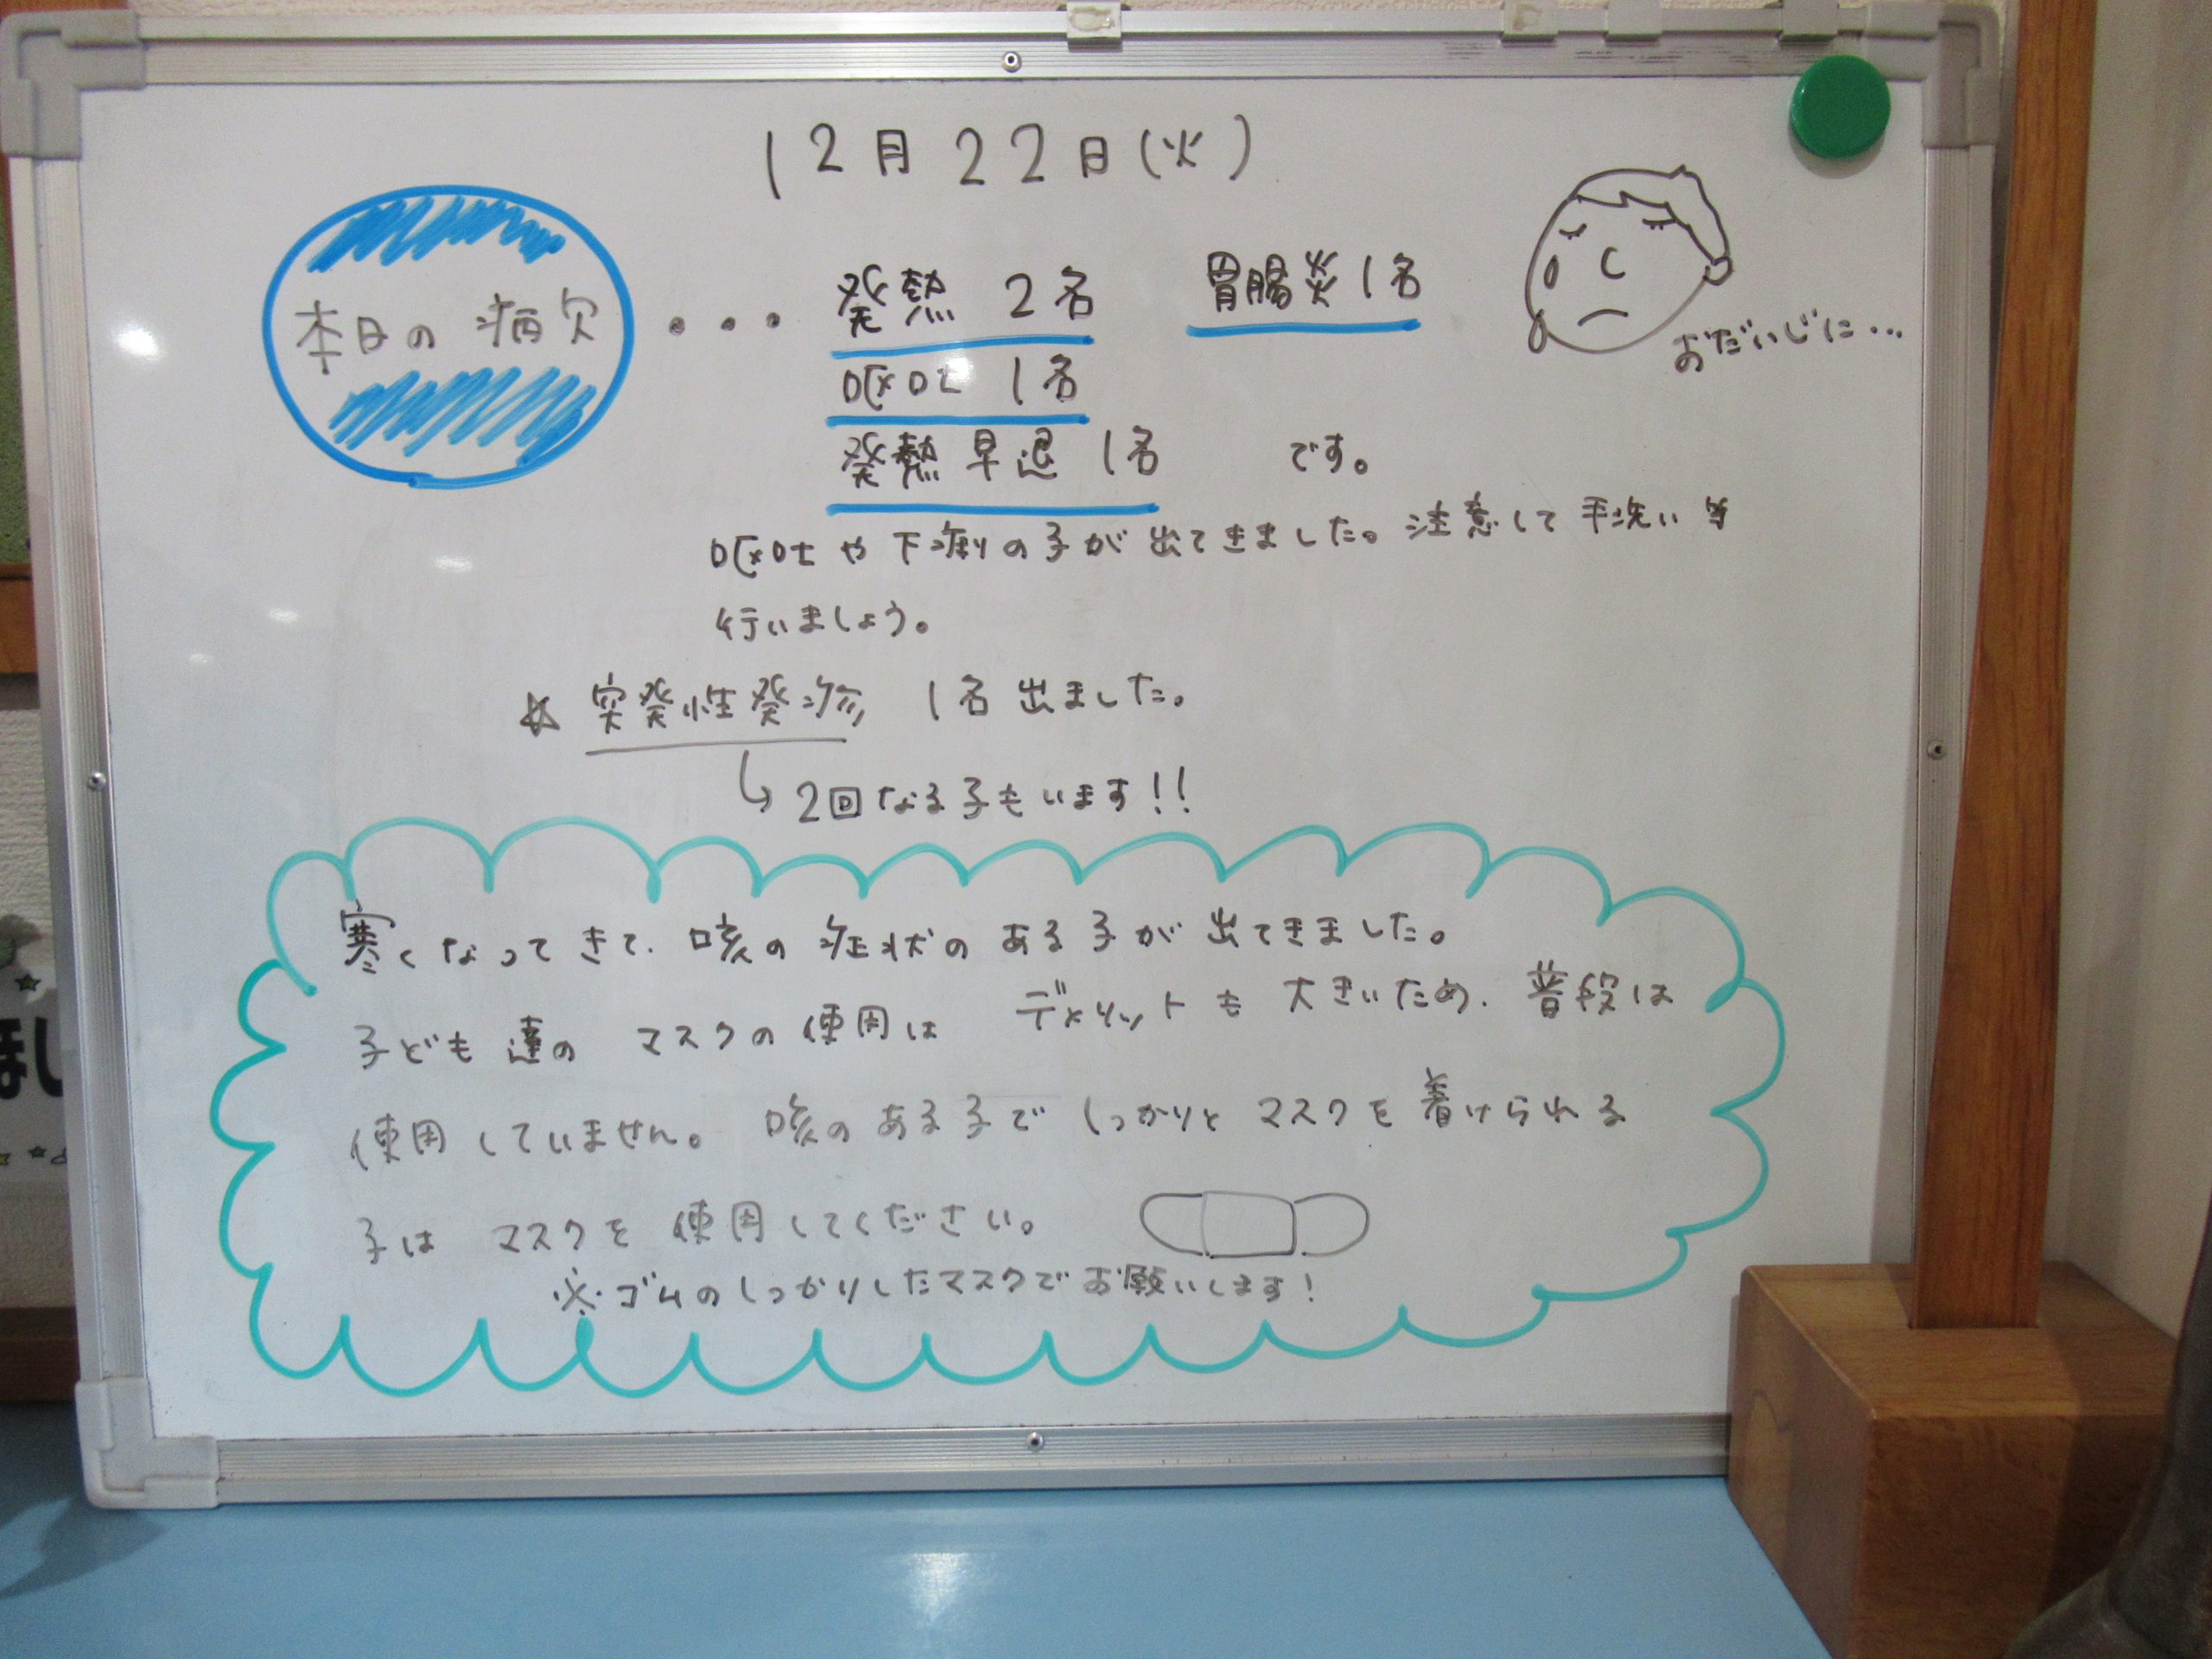 12月22日(火)
本日の病欠 ・・・ 発熱 2名 胃腸炎 1名
嘔吐 1名
発熱早退 1名 です。
おだいじに…
嘔吐や下痢の子が出てきました。注意して手洗い等
行いましょう。
☆ 突発性発疹 1名出ました。
↳ 2回なる子もいます!!
寒くなってきて、咳の症状のある子が出てきました。
子ども達の マスクの使用は デメリットも大きいため、普段は
使用していません。咳のある子でしっかりとマスクを着けられる
子は マスクを使用してください。
※ゴムのしっかりしたマスクでお願いします!
ほし